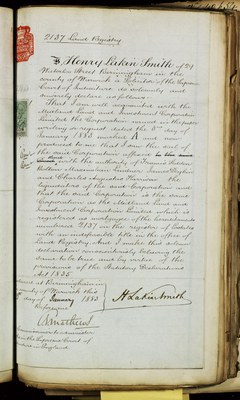 2137 Land Registry
I, Henry Lakin Smith of 27
Waterloo Street Birmingham in the
county of Warwick a Solicitor of the Supreme
Court of Judicature do solemnly and
sincerely declare as follows
That I am well acquainted with the
Midland Land and Investment Corporation
Limited the Corporation named in the paper
writing as signed dated the 3rd day of
January 1883 marked A and now
produced to me that I saw the seal of
the said Corporation affixed
with the authority of
and Charles Augustus Harrison the
liquidators of the said Corporation and
that the said Corporation is the same
Corporation as the Midland Land and
Investment Corporation Limited which is
registered as mortgagee of the hereditaments
numbered 2137 on the register of Estates
with an indefeasible title in the Office of
Land Registry And I make this solemn
declaration conscientiously believing the
same to be true and by virtue of the
provisions of the Statutory Declarations
Act 1835
at Birmingham in
county of Warwick this
day of January 1883
Before me
H Lakin Smith
in the Supreme Court of
in England